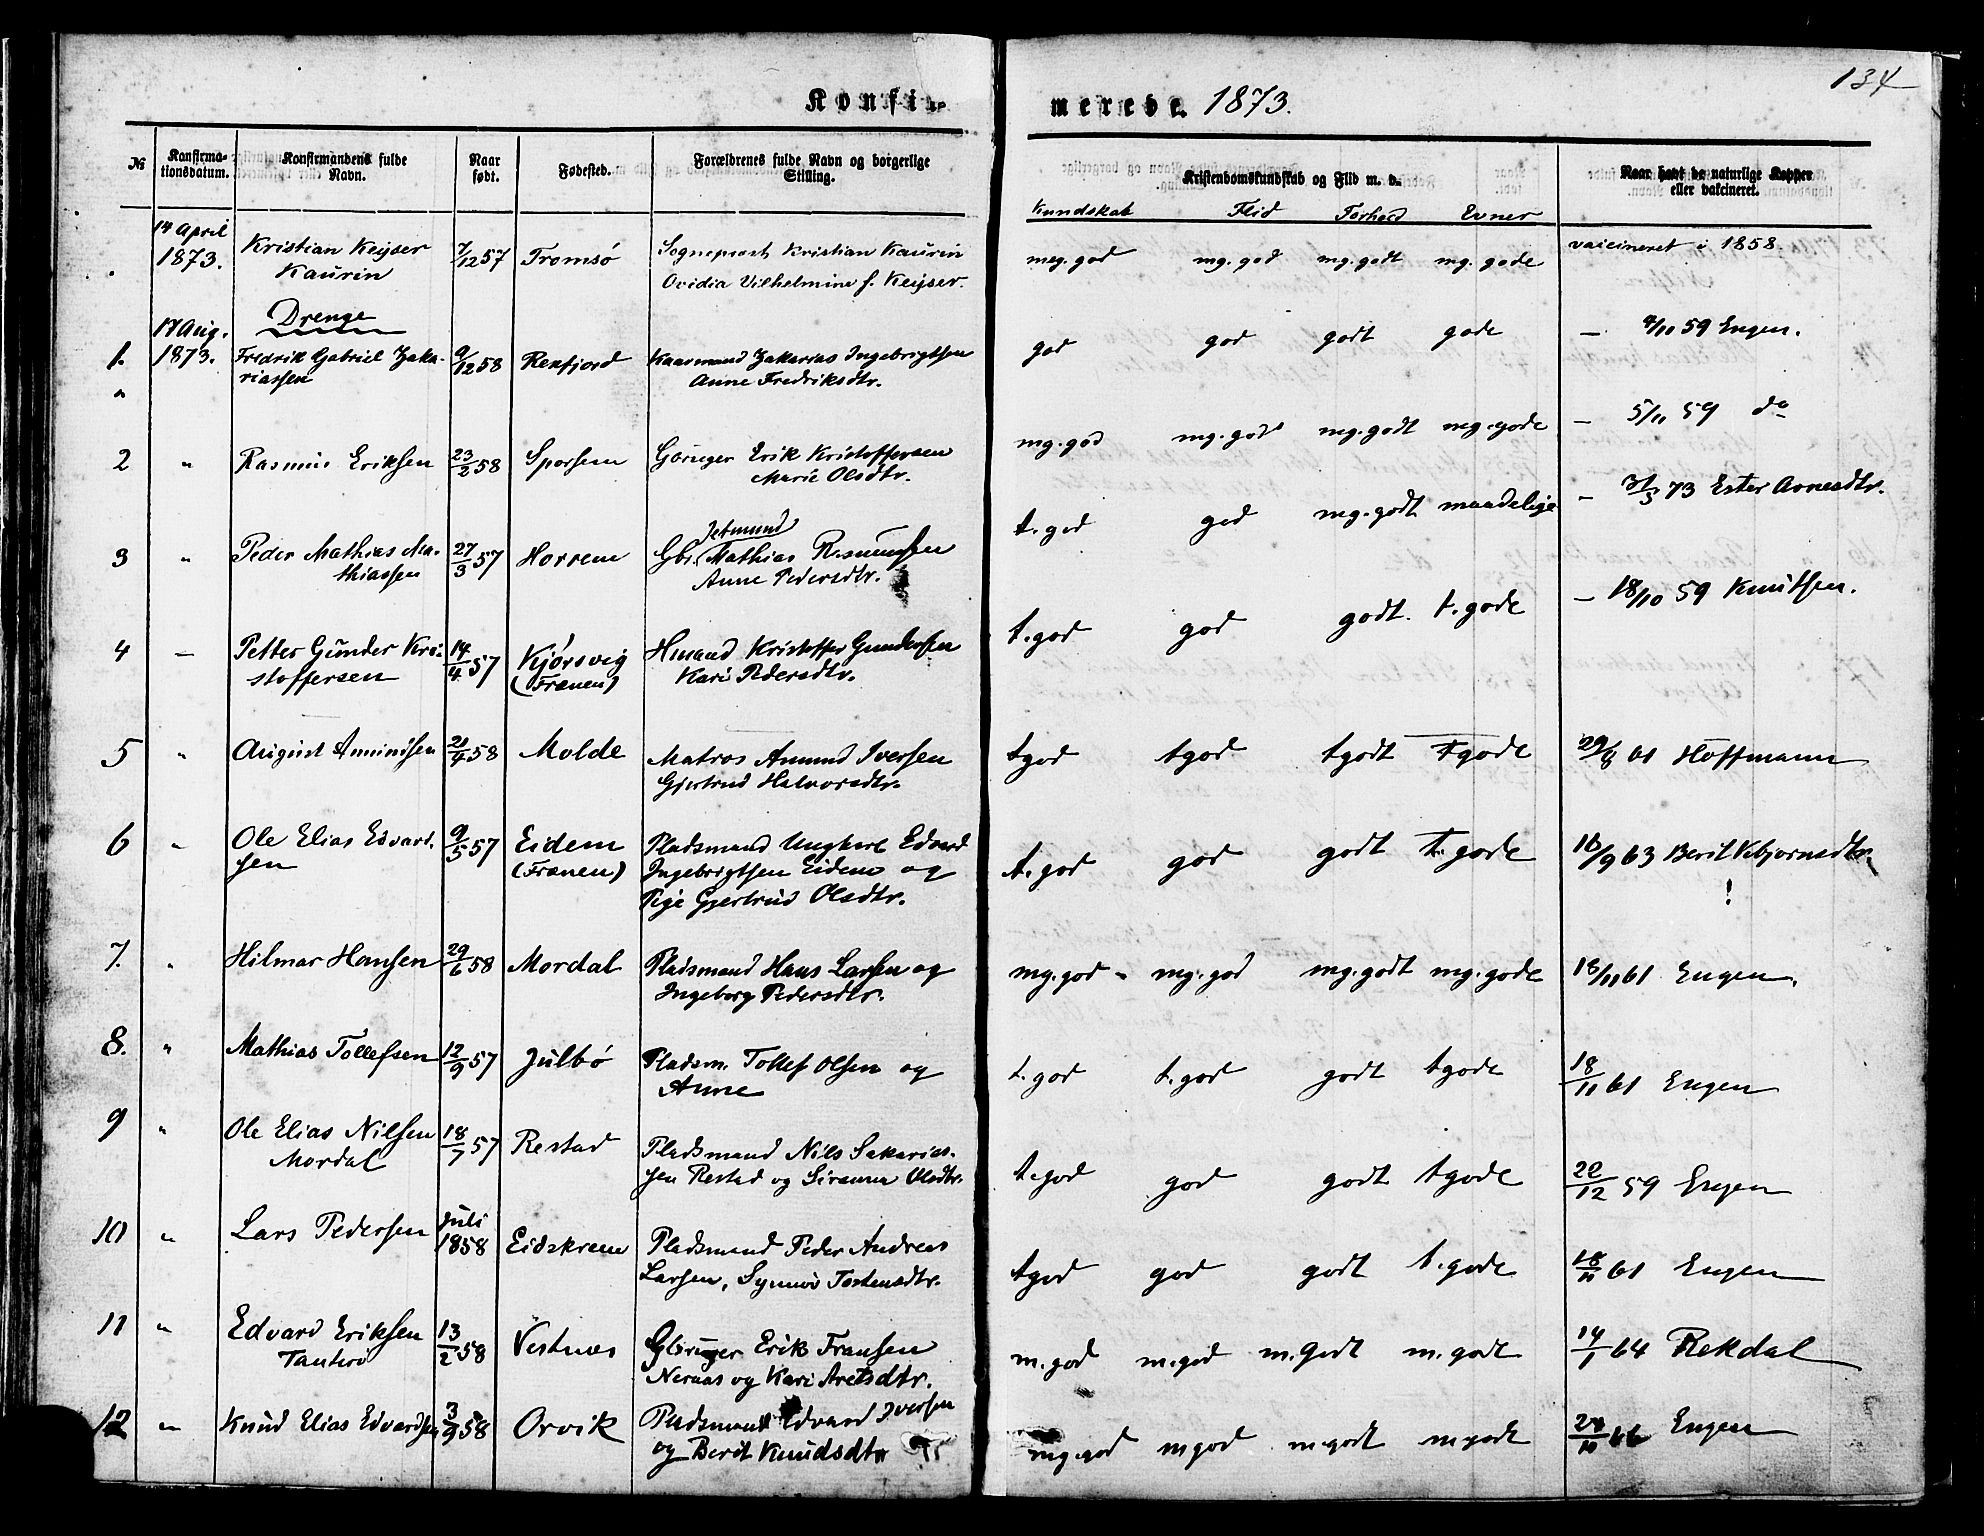 134
Konfirmerede 1873.
№
Konfirma-
tionsdatum.
Konfirmandens fulde
Navn.
Naar
født.
Fødested.
Forældrenes fulde Navn og borgerlige
Stilling.
Kristendomskundskab og Flid m. v.
Kundskab Flid Forhold Evner
Naar havt de naturlige Kopper
eller vakcineret.
14 April
1873. Kristian Keyser 7/12 57 Tromsø Sogneprest Kristian Kaurin meg.god mg.god mg.godt mg.gode vaccineret i 1858.
Kaurin Ovidia Vilhelmine f. Keyser.
Drenge
17 Aug.
1. 1873. Fredrik Gabriel Zaka- 9/12 58 Rekfjord Kaarmand Zakarias Ingebrigtsen god god godt gode — 4/11 59 Engen.
riassen Anne Fredriksdtr.
2 " Rasmus Eriksen 23/2 58 Sporsem Gbruger Erik Kristoffersen mg.god mg.god mg.godt mg.gode — 5/11 59 do
Marie Olsdtr.
3 " Peder Mathias Ma- 27/3 57 Horrem Gbr. Jetmund Mathias Rasmussen t.god god mg.godt maadelige — 31/3 73 Ester Arnesdtr.
thiassen Anne Pedersdtr.
4 — Petter Gunder Kri- 14/4 57 Kjørsvig Hmand Kristoffer Gundersen t.god god godt. t.gode — 18/10 59 Knutsen.
stoffersen (Frænen) Kari Pedersdtr.
5 " August Amundsen 21/4 58 Molde Matros Amund Iversen tgod tgod tgodt tgode 29/8 61 Hoffmann
Gjertrud Halvorsdtr.
6 " Ole Elias Edvard- 9/5 57 Eidem Pladsmand Ungkarl Edvard t.god god godt t.gode 10/9 63 Berit Vebjørnsdtr.
sen (Frænen) Ingebrigtsen Eidem og !
Pige Gjertrud Olsdtr.
7. " Hilmar Hansen 29/6 58 Mordal Pladsmand Hans Larsen og mg.god mg.god mg.godt mg.gode 18/11 61 Engen.
Ingeborg Pedersdtr.
8. " Mathias Tollefsen 12/9 57 Julbø Pladsm. Tollef Olsen og t.god t.god godt tgode 18/11 61 Engen
Anne
9 " Ole Elias Nilsen 18/7 57 Restad Pladsmand Nils Sakarias- t.god god godt tgode 22/12 59 Engen
Mordal sen Restad og Olsdtr.
10 " Lars Pedersen Juli Eidskrem Pladsmand Peder Andreas tgod god godt t.gode 18/11 61 Engen
1858 Larsen, Synnøv Tostensdtr.
11 " Edvard Eriksen 13/2 58 Vestnæs Gbruger Erik Fransen m.god m.god m.godt m.godt 14/1 64 Rekdal
Tanterø Neraas og Kari Aretsdtr.
12 " Knud Elias Edvardsen 3/9 58 Orvik Pladsmand Edvard Iversen mg.god mgod m.godt m.godt Engen
og Berit Knudsdtr